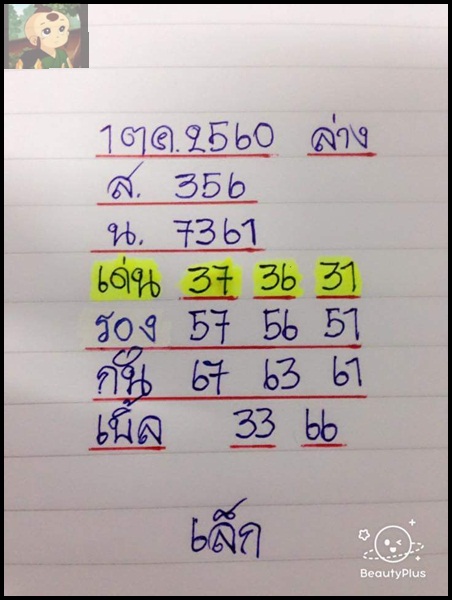 1 ต.ค. 2560 ล่าง
ส. 356
น. 7361
เด่น 37 36 31
รอง 57 56 51
กัน 67 63 61
เบิ้ล 33 66
เล็ก
BeautyPlus